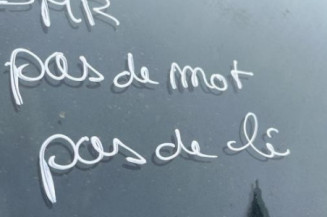 pas de mot
pas de lé